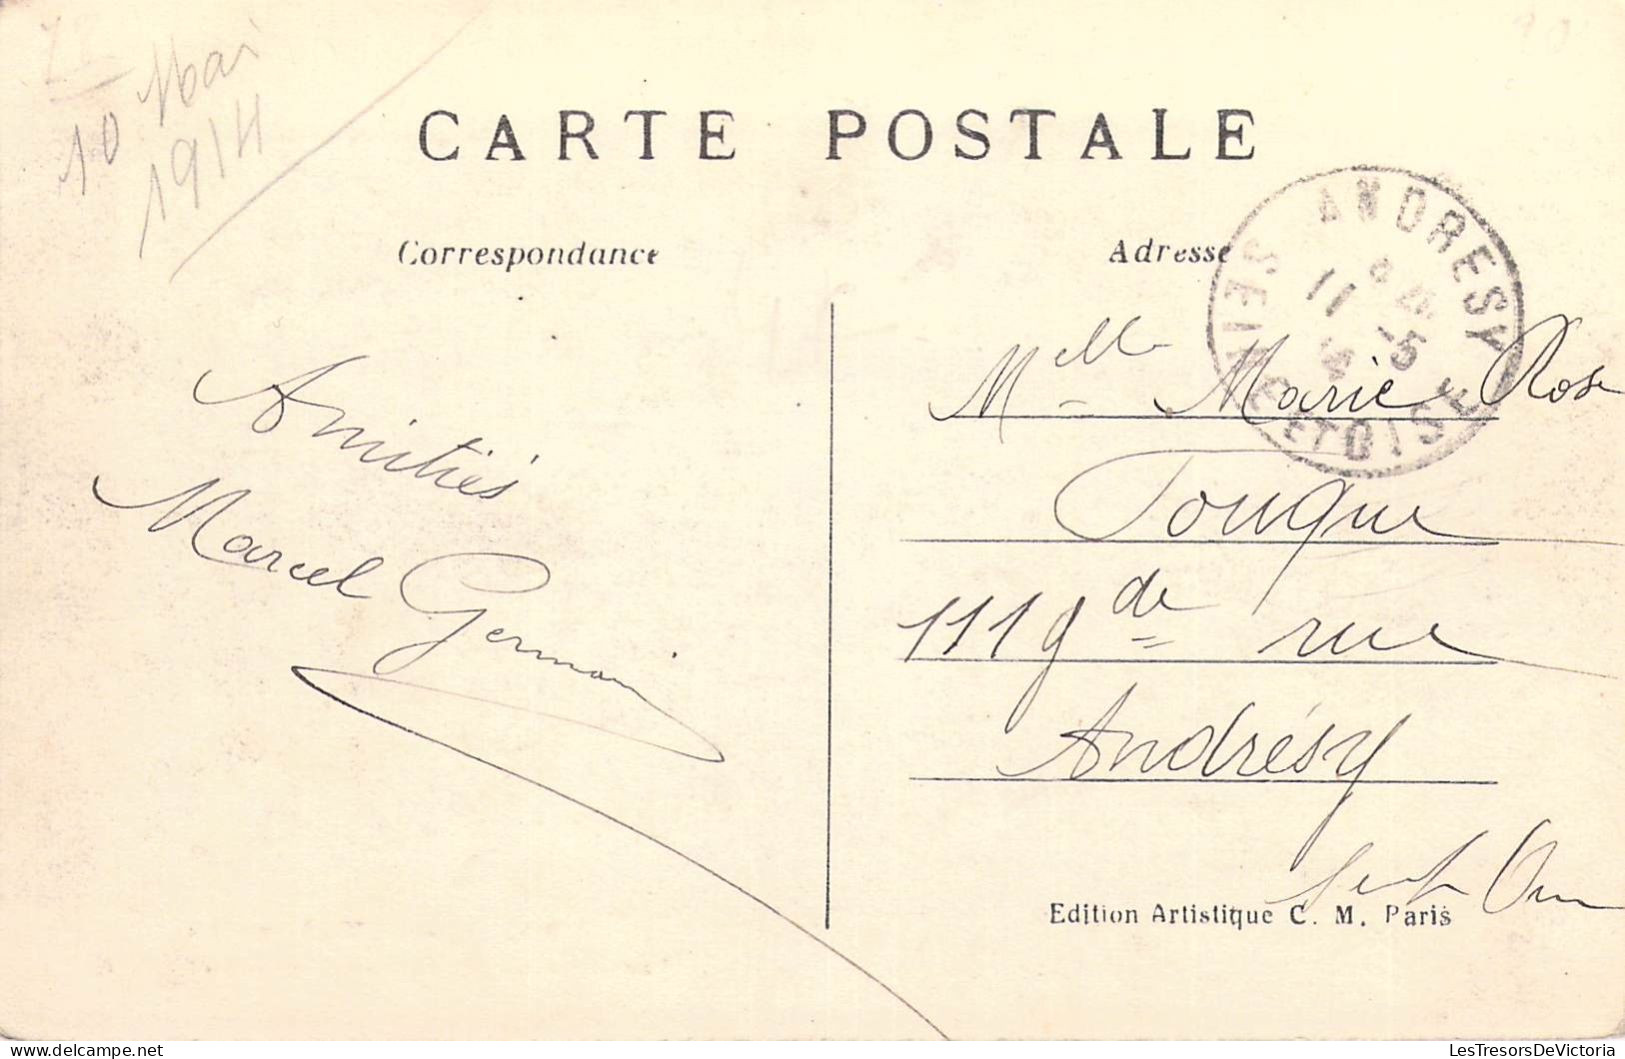 10 Mai
1914
CARTE POSTALE
Correspondance
Adresse
ANDRESY
SEINE ET OISE
11 -5
Amitiés
Marcel Germain
Melle Marie Rose
Touque
111 gde rue
Andrésy
Edition Artistique C. M. Paris
LesTresorsDeVictoria